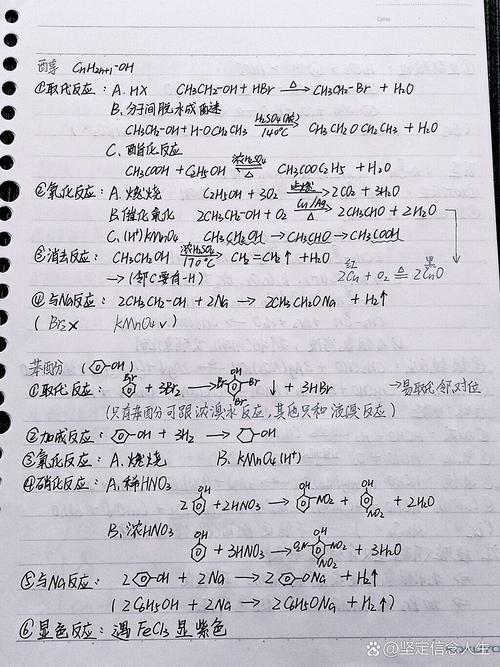 Date
醇 CnH2n+1-OH
①取代反应: A. HX CH3CH2-OH + HBr —△→ CH3CH2-Br + H2O
B. 分子间脱水成醚
CH3CH2-OH + H-OCH2CH3 —H2SO4(浓) 140℃→ CH3CH2OCH2CH3 + H2O
C. 酯化反应
CH3COOH + C2H5OH ⇌浓H2SO4 △ CH3COOC2H5 + H2O
②氧化反应: A. 燃烧 C2H5OH + 3O2 —点燃→ 2CO2 + 3H2O
B. 催化氧化 2CH3CH2-OH + O2 —Cu/Ag △→ 2CH3CHO + 2H2O
C. (H+)KMnO4 CH3CH2OH → CH3CHO → CH3COOH
③消去反应: CH3CH2OH —浓H2SO4 170℃→ CH2=CH2↑ + H2O 红 黑
→(邻C要有-H) 2Cu + O2 △= 2CuO
④与Na反应: 2CH3CH2-OH + 2Na → 2CH3CH2ONa + H2↑
( Br2× KMnO4√ )
苯酚 (⌬-OH)
①取代反应: + 3Br2 → OH Br Br Br ↓ + 3HBr →易取代邻对位
(只有苯酚可跟浓溴水反应,其他只和液溴反应)
②加成反应: ⌬-OH + 3H2 → ⬡-OH
③氧化反应: A. 燃烧 B. KMnO4(H+)
④硝化反应: A. 稀HNO3
2 OH + 2HNO3 → OH NO2 + OH NO2 + 2H2O
B. 浓HNO3
OH + 3HNO3 → OH O2N NO2 NO2 + 3H2O
⑤与Na反应: 2⌬-OH + 2Na → 2⌬-ONa + H2↑
(2C6H5OH + 2Na → 2C6H5ONa + H2↑)
⑥显色反应: 遇FeCl3显紫色
@坚定信念人生